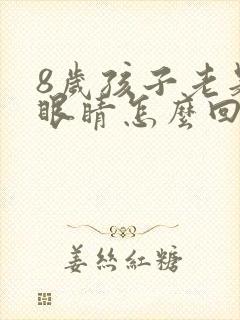 8歲孩子老是
眼睛怎麼回
姜絲紅糖